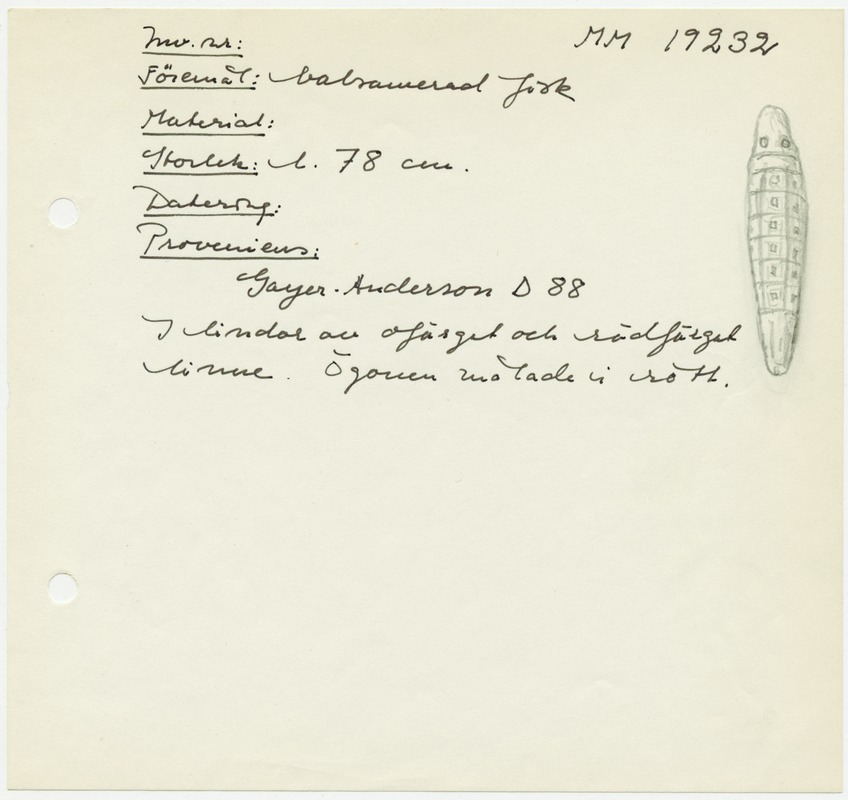 Inv. nr: MM 19232
Föremål: balsamerad fisk
Material:
Storlek: l. 78 cm.
Datering:
Proveniens:
Gayer-Anderson D 88
I lindor av ofärgat och rödfärgat
linne. Ögonen målade i rött.